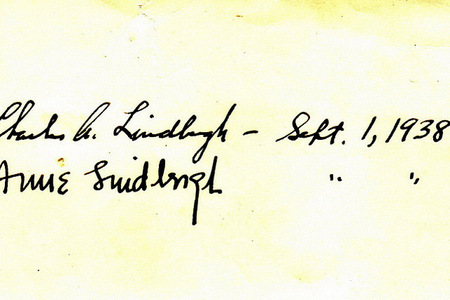 Charles A. Lindbergh – Sept. 1, 1938
Anne Lindbergh " "